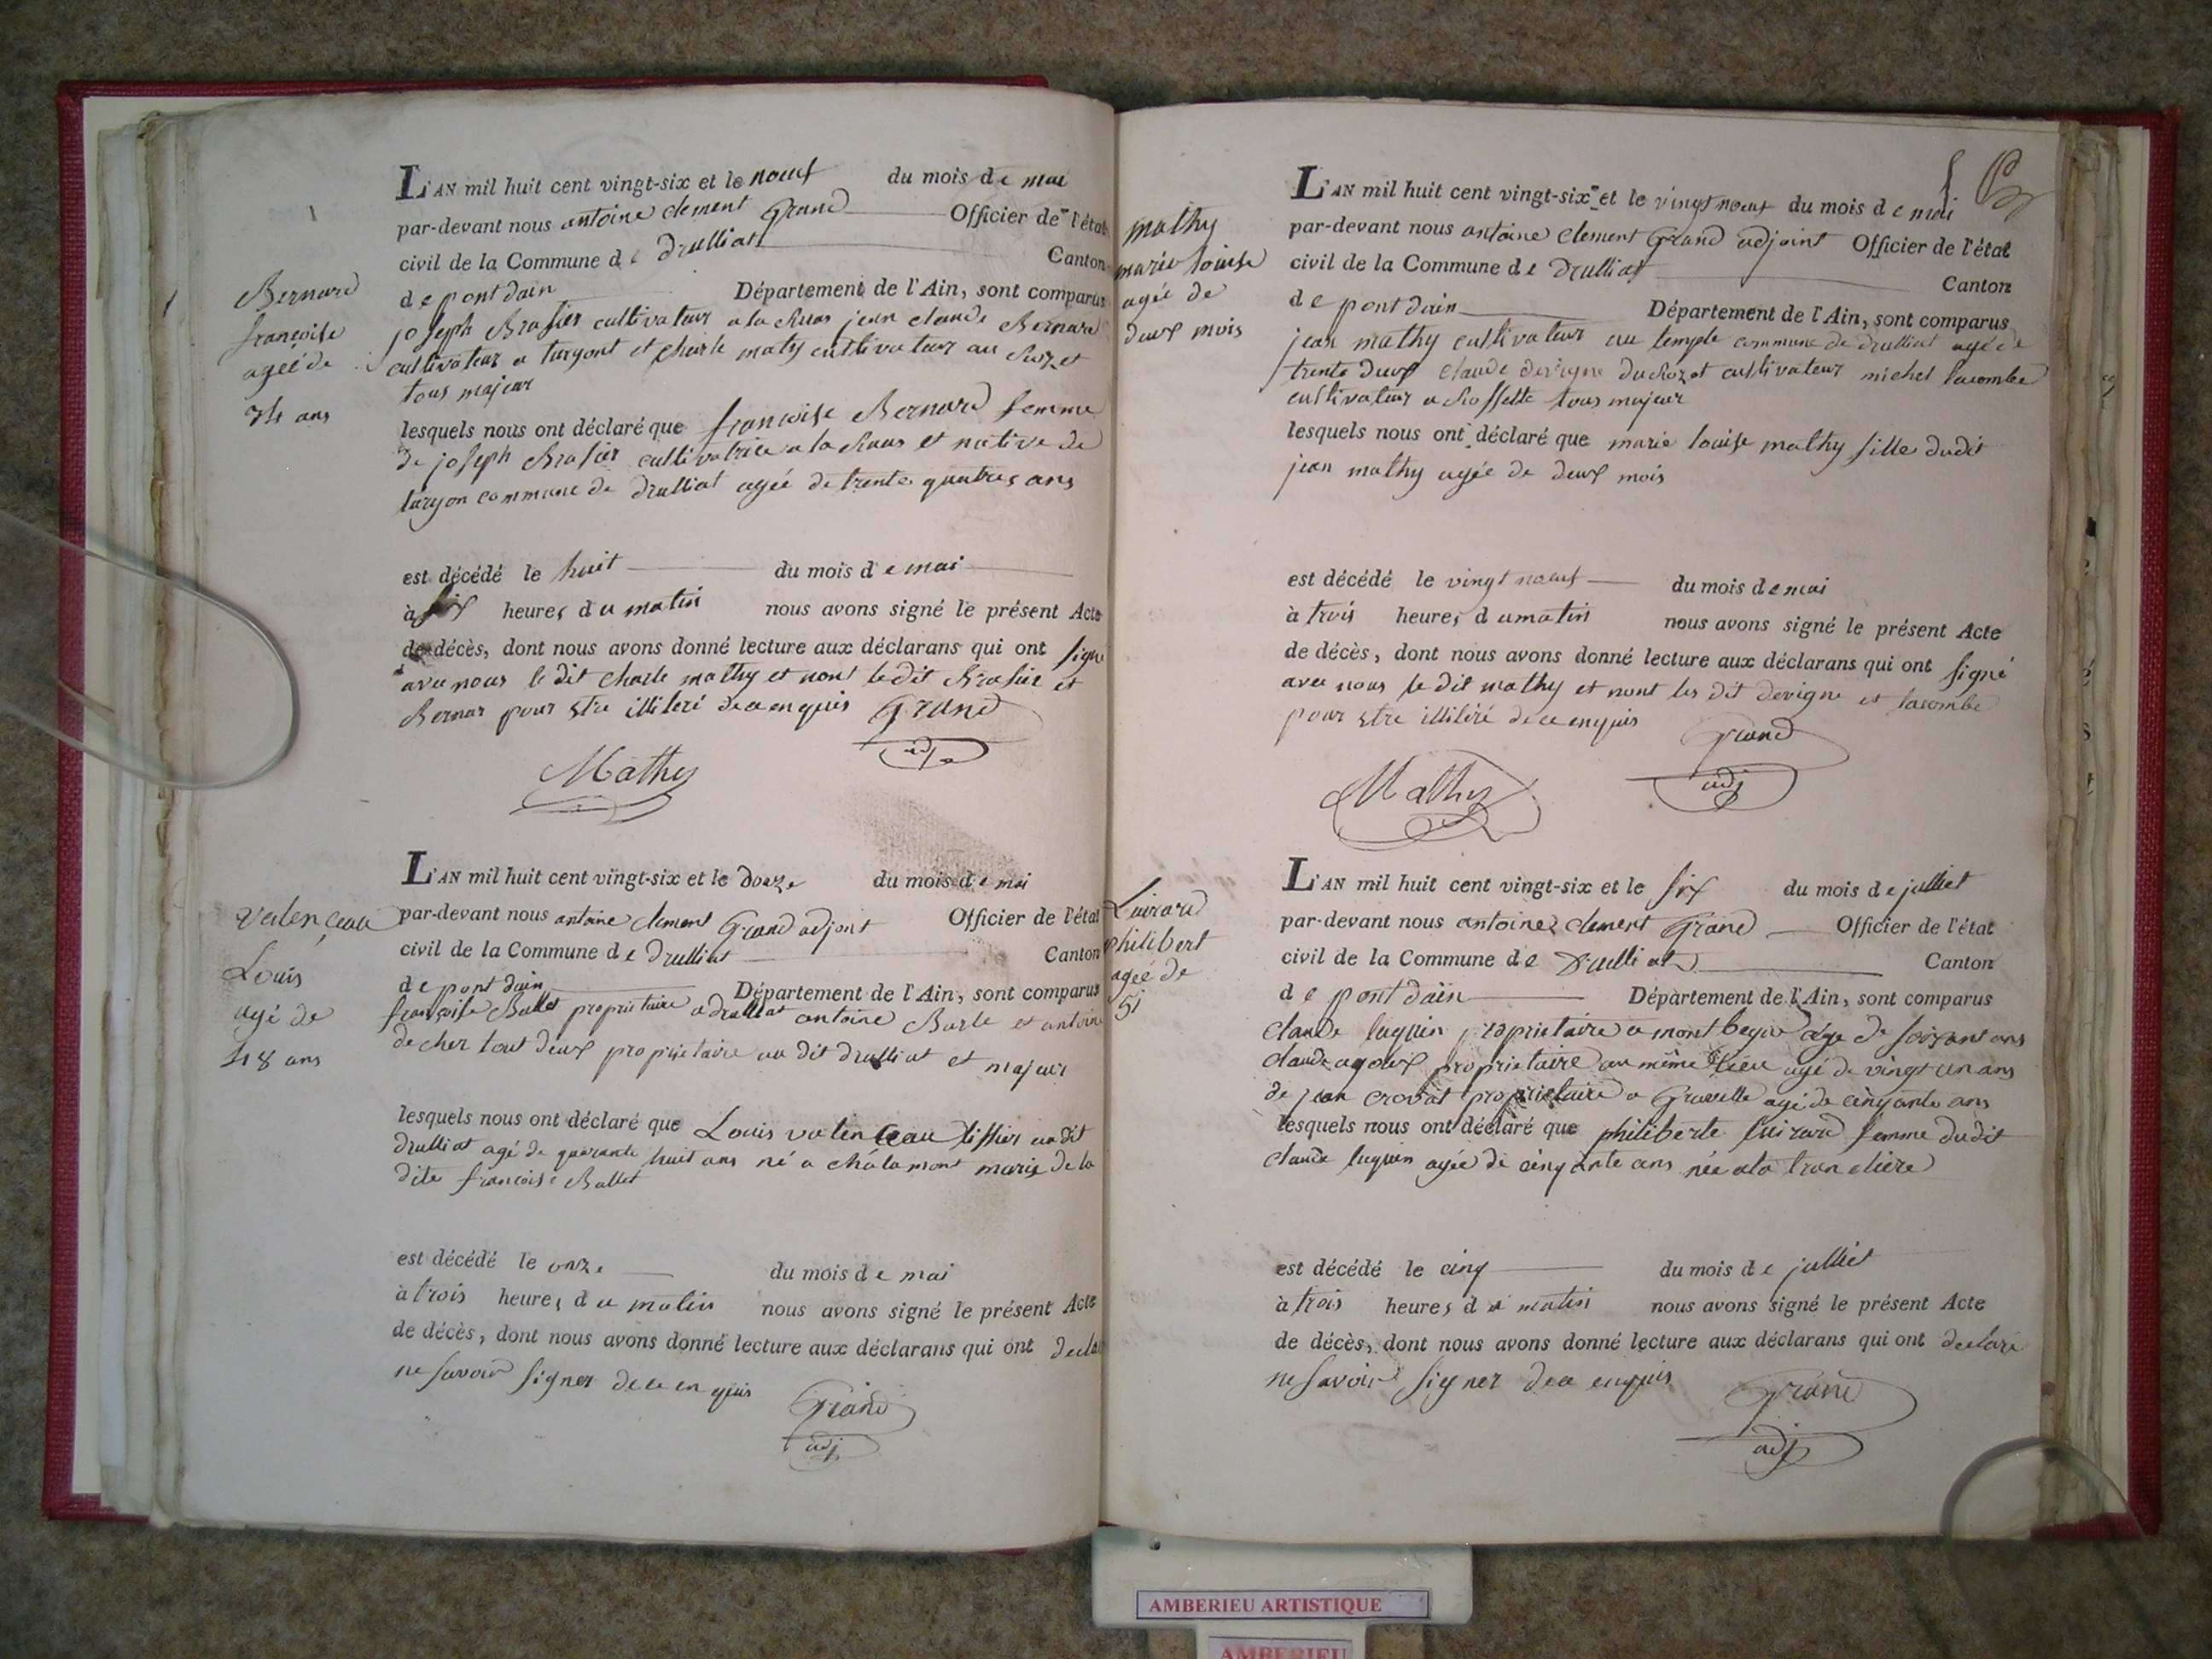 Bernard
francoise
ageé de
34 ans
L'AN mil huit cent vingt-six et le noeuf du mois de mai
par-devant nous antoine clement Grand Officier de l'état
civil de la Commune de Drulliat Canton
de pont dain Département de l'Ain, sont comparus
joseph Brasier cultivateur a la Ruas jean claude Bernard
cultivateur a turgont et charle maty cultivateur au et
tous majeur
lesquels nous ont déclaré que francoise Bernard femme
de joseph Brasier cultivatrice a la Ruas et native de
turgon commune de Drulliat agée de trente quatres ans
est décédé le huit du mois de mai
à six heures du matin nous avons signé le présent Acte
de décès, dont nous avons donné lecture aux déclarans qui ont signé
avec nous le dit charle mathy et nont le dit Brasier et
Bernar pour stre illiteré de ce enquis Grand
adj
Mathy
valenceau
Louis
agé de
48 ans
L'AN mil huit cent vingt-six et le douze du mois de mai
par-devant nous antoine clement Grand adjoint Officier de l'état
civil de la Commune de Drulliat Canton
de pont dain Département de l'Ain, sont comparus
françoise Ballet proprietaire a drulliat antoine Barle et antoine
decher tout deux propriétaire au dit drulliat et majeur
lesquels nous ont déclaré que Louis valenceau tissier au dit
drulliat agé de quarante huit ans né a châlamont marie de la
dite francoise Ballet
est décédé le onze du mois de mai
à trois heures du matin nous avons signé le présent Acte
de décès, dont nous avons donné lecture aux déclarans qui ont
ne savoir signer de ce enquis Grand
adj
mathy
marie louise
agée de
deux mois
L'AN mil huit cent vingt-six et le vingt noeuf du mois de mai
par-devant nous antoine clement Grand adjoint Officier de l'état
civil de la Commune de Drulliat Canton
de pont dain Département de l'Ain, sont comparus
jean mathy cultivateur au temple commune de drulliat agé de
trente deux claude devigne du Rozet cultivateur michel lacombe
cultivateur a Rossette tous majeur
lesquels nous ont déclaré que marie louise mathy fille dudit
jean mathy agée de deux mois
est décédé le vingt noeuf du mois de mai
à trois heures du matin nous avons signé le présent Acte
de décès, dont nous avons donné lecture aux déclarans qui ont signé
avec nous le dit mathy et nont les dit devigne et lacombe
pour stre illitéré de ce enquis Grand
adj
Mathy
Luirard
philibert
ageé de
51
L'AN mil huit cent vingt-six et le six du mois de julliet
par-devant nous antoine clement Grand Officier de l'état
civil de la Commune de Drulliat Canton
de pont dain Département de l'Ain, sont comparus
claude luquin proprietaire a mont age de soixant ans
claude proprietaire au même lieu agé de vingt un ans
de jean crovat proprietaire a Gravelle agé de cinqante ans
lesquels nous ont déclaré que philiberte luirard femme dudit
claude luquin agée de cinqante ans née a la tranclière
est décédé le cinq du mois de julliet
à trois heures du matin nous avons signé le présent Acte
de décès, dont nous avons donné lecture aux déclarans qui ont declaré
ne savoir signer de ce enquis Grand
adj
AMBERIEU ARTISTIQUE
AMBERIEU